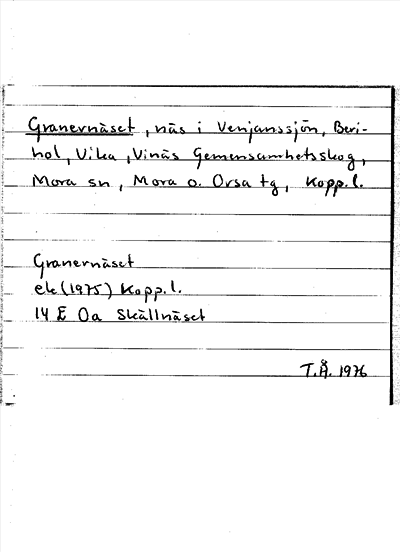 Granernäset, näs i Venjanssjön, Beri-
hol, Vika, Vinäs Gemensamhetsskog,
Mora sn, Mora o. Orsa tg, Kopp. l.
Granernäset
ek (1975) Kopp. l.
14 E 0a Skällnäset
T.Å. 1976